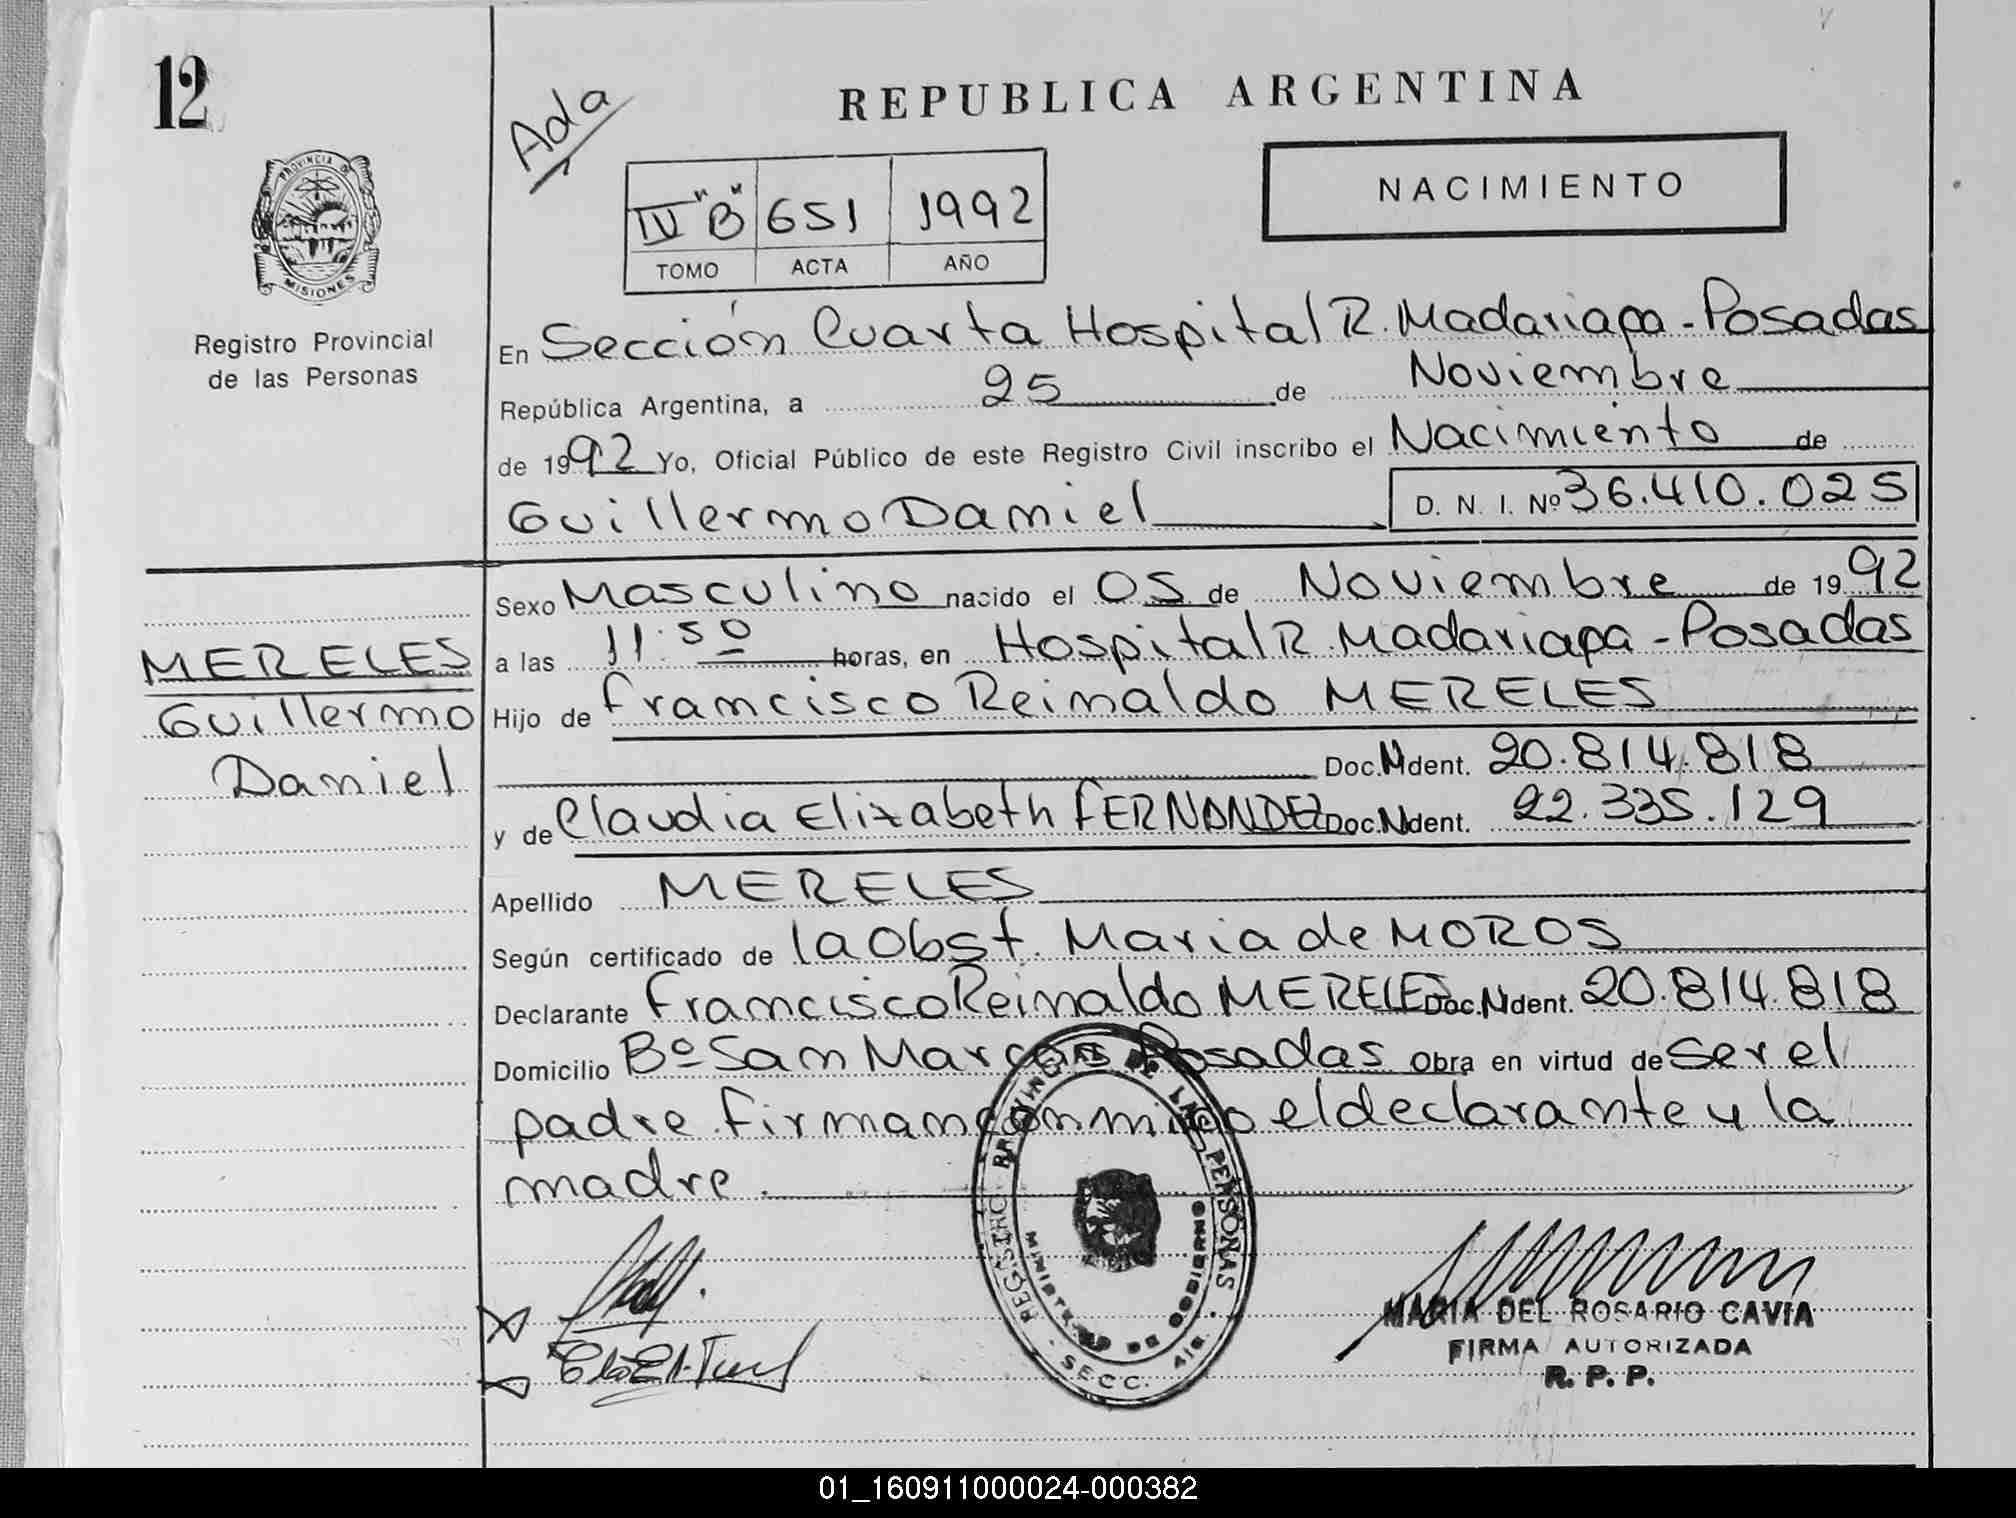 12
PROVINCIA DE
MISIONES
Registro Provincial
de las Personas
Ada
REPUBLICA ARGENTINA
IV "B" 651 1992
TOMO ACTA AÑO
NACIMIENTO
En Sección Cuarta Hospital R. Madariaga - Posadas
República Argentina, a 25 de Noviembre
de 1992 Yo, Oficial Público de este Registro Civil inscribo el Nacimiento de
Guillermo Daniel D. N. I. Nº 36.410.025
Sexo Masculino nacido el 05 de Noviembre de 1992
a las 11:50 horas, en Hospital R. Madariaga - Posadas
Hijo de Francisco Reinaldo MERELES
Doc. Ident. 20.814.818
y de Claudia Elizabeth FERNANDEZ Doc. Ident. 22.335.129
Apellido MERELES
Según certificado de la Obst. Maria de MOROS
Declarante Francisco Reinaldo MERELES Doc. Ident. 20.814.818
Domicilio Bº San Marcos Posadas Obra en virtud de ser el
padre firman conmigo el declarante y la
madre.
MERELES
Guillermo
Daniel
REGISTRO PROVINCIAL DE LAS PERSONAS
MINISTERIO DE GOBIERNO
SECC. 4ta.
MARIA DEL ROSARIO CAVIA
FIRMA AUTORIZADA
R. P. P.
01_160911000024-000382